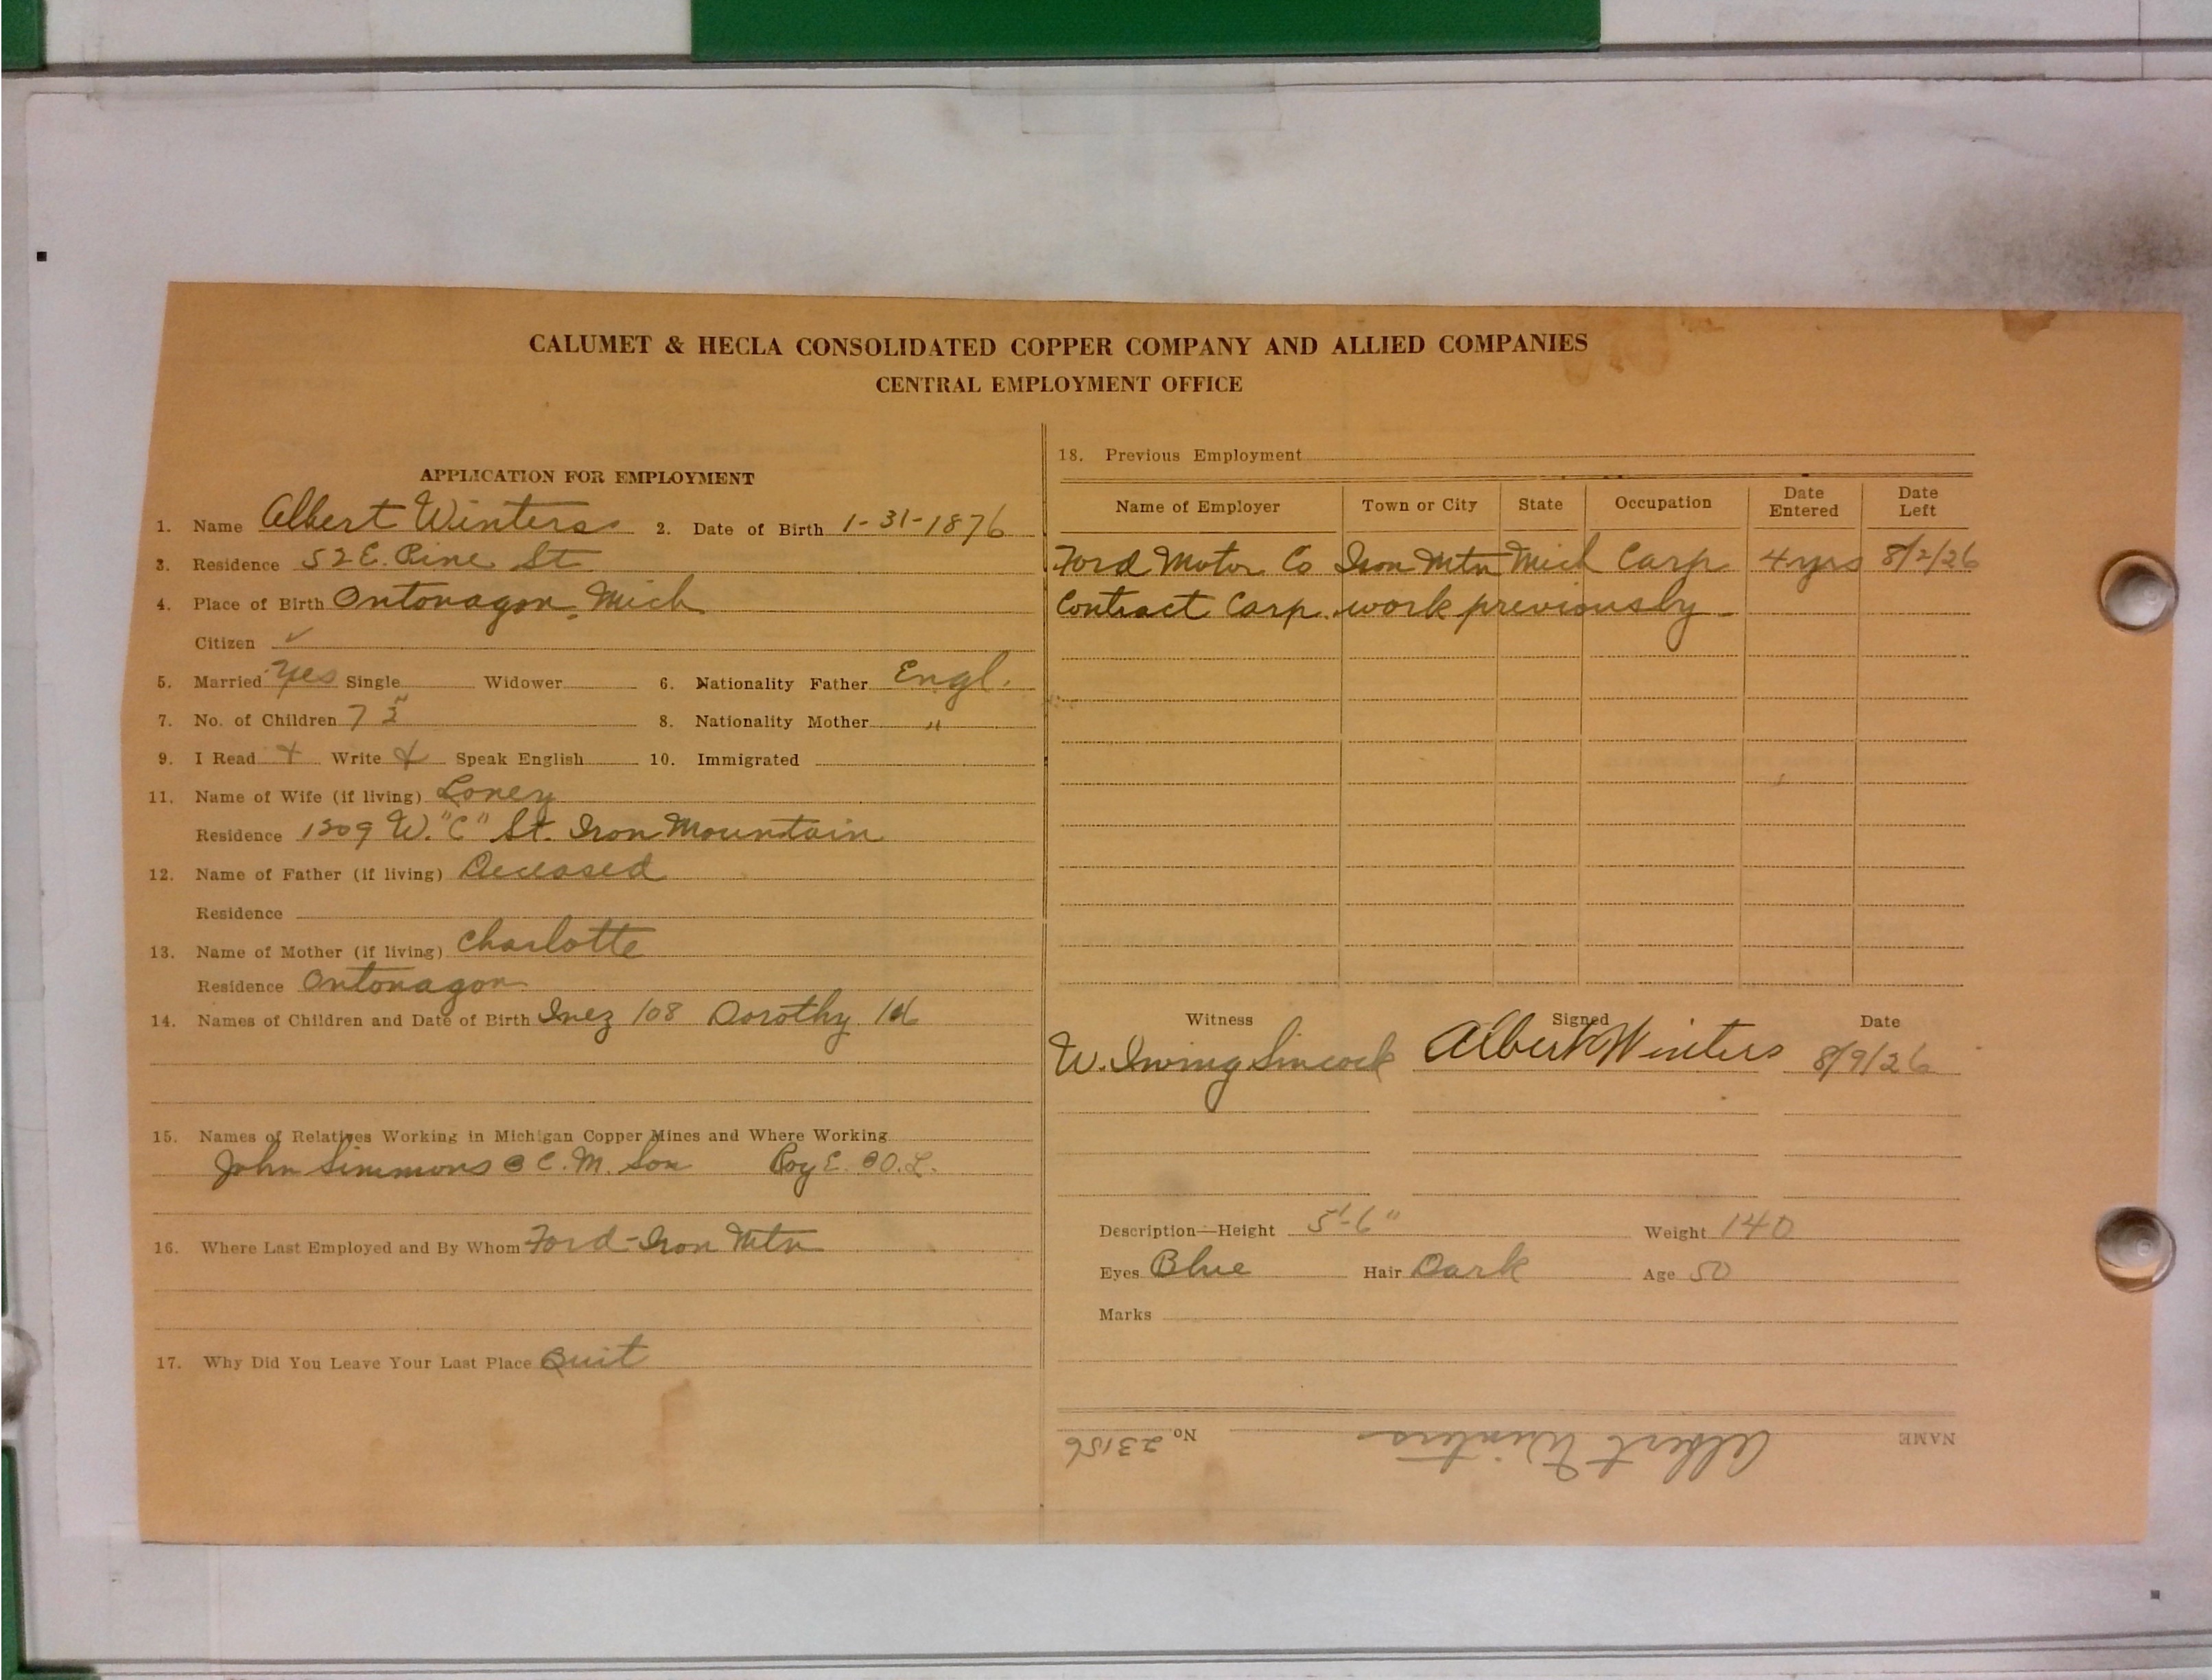 CALUMET & HECLA CONSOLIDATED COPPER COMPANY AND ALLIED COMPANIES
CENTRAL EMPLOYMENT OFFICE
APPLICATION FOR EMPLOYMENT
1. Name Albert Winters 2. Date of Birth 1-31-1876
3. Residence 52 E. Pine St
4. Place of Birth Ontonagon, Mich
Citizen ✓
5. Married Yes Single Widower 6. Nationality Father Engl.
7. No. of Children 7 8. Nationality Mother "
9. I Read + Write + Speak English 10. Immigrated
11. Name of Wife (if living) Loney
Residence 1309 W. "C" St. Iron Mountain
12. Name of Father (if living) Deceased
Residence
13. Name of Mother (if living) Charlotte
Residence Ontonagon
14. Names of Children and Date of Birth Inez 108 Dorothy
15. Names of Relatives Working in Michigan Copper Mines and Where Working
John Simmons @ C. M. Son Roy E. @ O. L.
16. Where Last Employed and By Whom Ford - Iron Mtn
17. Why Did You Leave Your Last Place Quit
18. Previous Employment
Name of Employer Town or City State Occupation Date Entered Date Left
Ford Motor Co Iron Mtn Mich Carp 4 yrs 8/2/26
Contract Carp. work previously
Witness Signed Date
W. Irving Sincock Albert Winters 8/9/26
Description—Height 5'-6" Weight 140
Eyes Blue Hair Dark Age 50
Marks
NAME Albert Winters No 23156